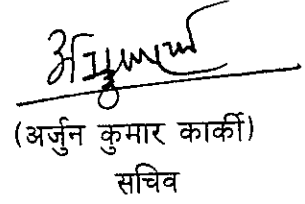 (अर्जुन कुमार कार्की)
सचिव